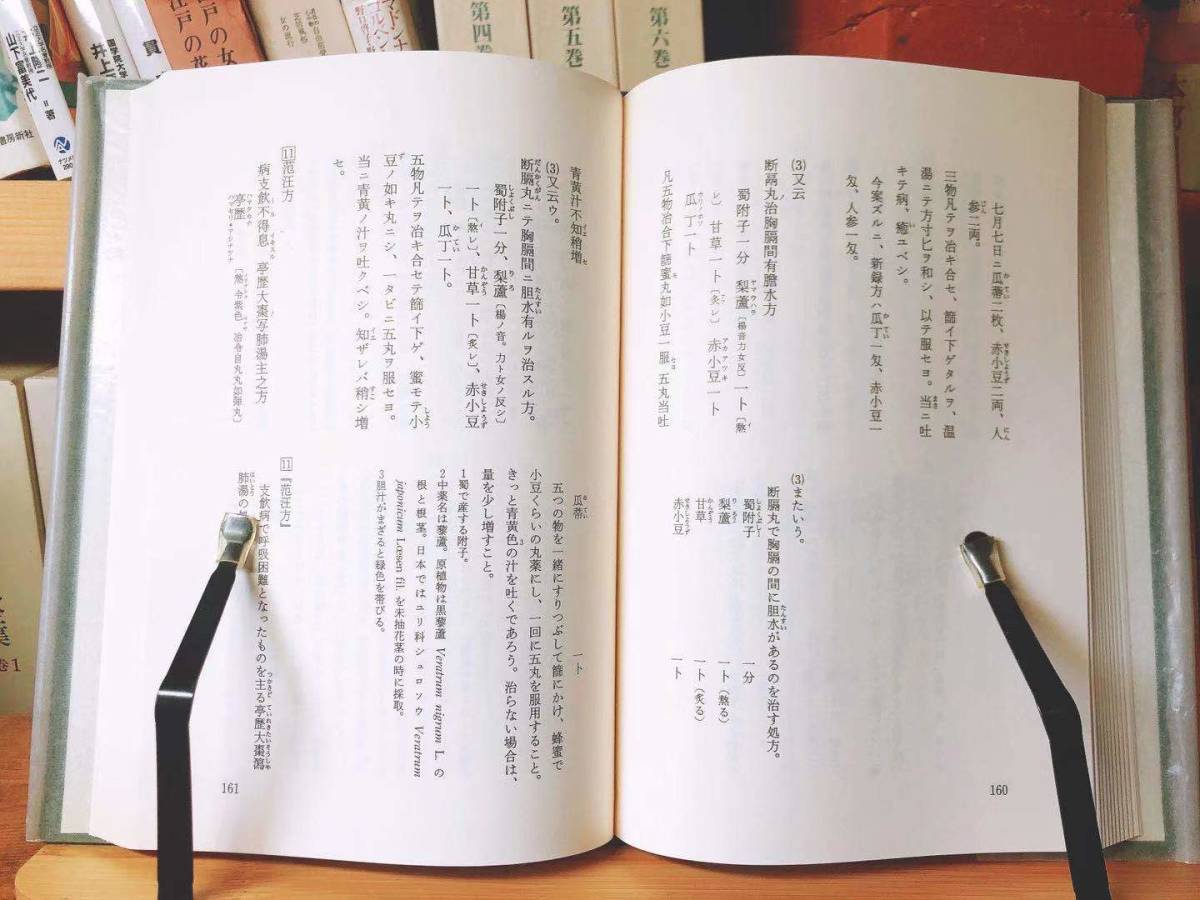 第四巻
第五巻
第六巻
山下富美代
井上
江戸の花
七月七日ニ瓜蒂二枚、赤小豆二両、人
参二両。
三物凡テヲ冶キ合セ、篩イ下ゲタルヲ、温
湯ニテ方寸匕ヲ和シ、以テ服セヨ。当ニ吐
キテ病、癒ユベシ。
今案ズルニ、新録方ハ瓜丁一匁、赤小豆一
匁、人参一匁。
⑶又云
断鬲丸治胸膈間有膽水方
蜀附子一分 梨蘆〔楊音力女反〕一卜〔熬
ヒ〕 甘草一卜〔炙ヒ〕 赤小豆一卜
瓜丁一卜
凡五物冶合下篩蜜丸如小豆一服五丸当吐
⑶またいう。
断膈丸で胸膈の間に胆水があるのを治す処方。
蜀附子 一分
梨蘆 一卜(熬る)
甘草 一卜(炙る)
赤小豆 一卜
160
青黄汁不知稍増
⑶又云ゥ。
断膈丸ニテ胸膈間ニ胆水有ルヲ治スル方。
蜀附子一分、梨蘆〔楊ノ音。力ト女ノ反シ〕
一卜〔熬レ〕、甘草一卜〔炙レ〕、赤小豆
一卜、瓜丁一卜。
五物凡テヲ冶キ合セテ篩イ下ゲ、蜜モテ小
豆ノ如キ丸ニシ、一タビニ五丸ヲ服セヨ。
当ニ青黄ノ汁ヲ吐クベシ。知ザレバ稍シ増
セ。
11 范汪方
病支飲不得息 亭歴大棗写肺湯主之方
亭歴〔熬令紫色 治舂自丸丸如弾丸〕
瓜蒂 一卜
五つの物を一緒にすりつぶして篩にかけ、蜂蜜で
小豆くらいの丸薬にし、一回に五丸を服用すること。
きっと青黄色の汁を吐くであろう。治らない場合は、
量を少し増すこと。
1 蜀で産する附子。
2 中薬名は藜蘆。原植物は黒藜蘆 Veratrum nigrum L. の
根と根茎。日本ではユリ科シュロソウ Veratrum
japonicum Lœsen fil. を未抽花茎の時に採取。
3 胆汁がまざると緑色を帯びる。
11 『范汪方』
支飲病で呼吸困難となったものを主る亭歴大棗瀉
肺湯の
161